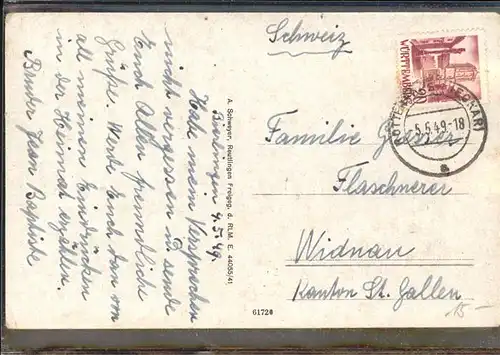 Bierlingen 4.5.49.
Habe mein Versprechen
nicht vergessen u. sende
Euch Allen freundliche
Grüße. Werde Euch dann von
all meinen Eindrücken
in der Heimat erzählen.
Bruder Jean Baptiste
A. Schweyer, Reutlingen Freigeg. d. RLM. E. 44055/41
61720
Schweiz
WÜRTTEMBERG
(NECKAR)
5.5.49.-18
a
Familie
Flaschnerei
Widnau
Kanton St. Gallen
15-